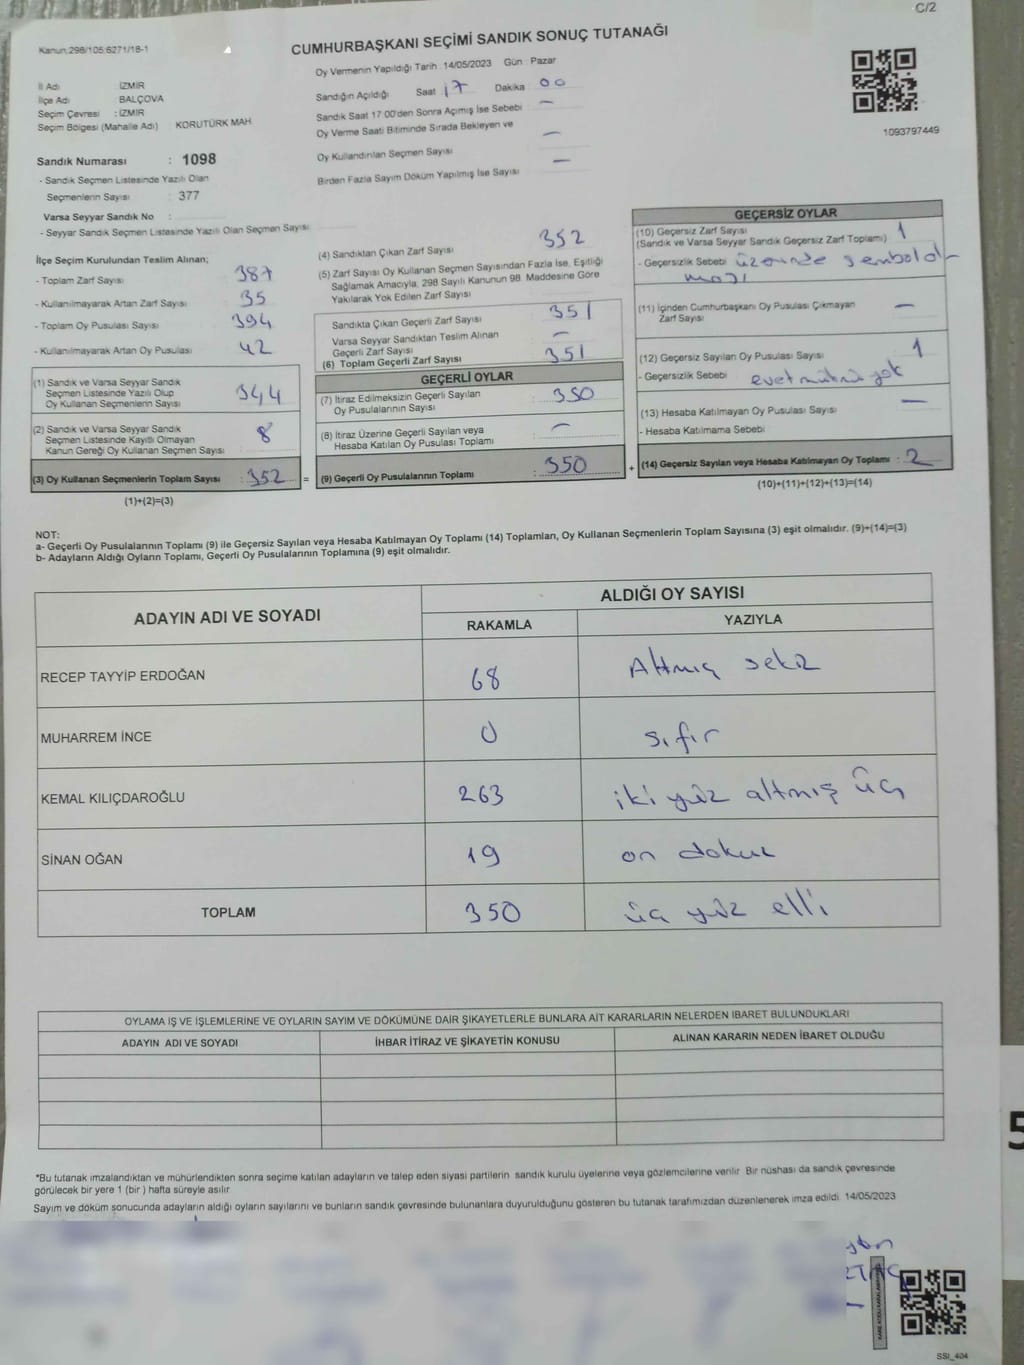 C/2
Kanun:298/105;6271/18-1
CUMHURBAŞKANI SEÇİMİ SANDIK SONUÇ TUTANAĞI
Oy Vermenin Yapıldığı Tarih :14/05/2023 Gün : Pazar
İl Adı : İZMİR
İlçe Adı : BALÇOVA
Seçim Çevresi : İZMİR
Seçim Bölgesi (Mahalle Adı) : KORUTÜRK MAH.
Sandığın Açıldığı Saat 17 Dakika 00
Sandık Saat 17 00'den Sonra Açılmış İse Sebebi —
Oy Verme Saati Bitiminde Sırada Bekleyen ve
Oy Kullandırılan Seçmen Sayısı —
Birden Fazla Sayım Döküm Yapılmış İse Sayısı —
1093797449
Sandık Numarası : 1098
- Sandık Seçmen Listesinde Yazılı Olan
Seçmenlerin Sayısı : 377
Varsa Seyyar Sandık No :
- Seyyar Sandık Seçmen Listesinde Yazılı Olan Seçmen Sayısı:
İlçe Seçim Kurulundan Teslim Alınan;
- Toplam Zarf Sayısı : 387
- Kullanılmayarak Artan Zarf Sayısı : 35
- Toplam Oy Pusulası Sayısı : 394
- Kullanılmayarak Artan Oy Pusulası : 42
(1) Sandık ve Varsa Seyyar Sandık
Seçmen Listesinde Yazılı Olup
Oy Kullanan Seçmenlerin Sayısı : 344
(2) Sandık ve Varsa Seyyar Sandık
Seçmen Listesinde Kayıtlı Olmayan
Kanun Gereği Oy Kullanan Seçmen Sayısı : 8
(3) Oy Kullanan Seçmenlerin Toplam Sayısı : 352
(1)+(2)=(3)
(4) Sandıktan Çıkan Zarf Sayısı : 352
(5) Zarf Sayısı Oy Kullanan Seçmen Sayısından Fazla İse, Eşitliği
Sağlamak Amacıyla, 298 Sayılı Kanunun 98. Maddesine Göre
Yakılarak Yok Edilen Zarf Sayısı
Sandıkta Çıkan Geçerli Zarf Sayısı : 351
Varsa Seyyar Sandıktan Teslim Alınan
Geçerli Zarf Sayısı —
(6) Toplam Geçerli Zarf Sayısı : 351
GEÇERLİ OYLAR
(7) İtiraz Edilmeksizin Geçerli Sayılan
Oy Pusulalarının Sayısı : 350
(8) İtiraz Üzerine Geçerli Sayılan veya
Hesaba Katılan Oy Pusulası Toplamı : —
= (9) Geçerli Oy Pusulalarının Toplamı : 350
GEÇERSİZ OYLAR
(10) Geçersiz Zarf Sayısı
(Sandık ve Varsa Seyyar Sandık Geçersiz Zarf Toplamı) : 1
- Geçersizlik Sebebi üzerinde sembol ol-
ması
(11) İçinden Cumhurbaşkanı Oy Pusulası Çıkmayan
Zarf Sayısı —
(12) Geçersiz Sayılan Oy Pusulası Sayısı : 1
- Geçersizlik Sebebi evet mührü yok
(13) Hesaba Katılmayan Oy Pusulası Sayısı : —
- Hesaba Katılmama Sebebi
+ (14) Geçersiz Sayılan veya Hesaba Katılmayan Oy Toplamı : 2
(10)+(11)+(12)+(13)=(14)
NOT:
a- Geçerli Oy Pusulalarının Toplamı (9) ile Geçersiz Sayılan veya Hesaba Katılmayan Oy Toplamı (14) Toplamları, Oy Kullanan Seçmenlerin Toplam Sayısına (3) eşit olmalıdır. (9)+(14)=(3)
b- Adayların Aldığı Oyların Toplamı, Geçerli Oy Pusulalarının Toplamına (9) eşit olmalıdır.
ADAYIN ADI VE SOYADI ALDIĞI OY SAYISI
RAKAMLA YAZIYLA
RECEP TAYYİP ERDOĞAN 68 Altmış sekiz
MUHARREM İNCE 0 sıfır
KEMAL KILIÇDAROĞLU 263 iki yüz altmış üç
SİNAN OĞAN 19 on dokuz
TOPLAM 350 üç yüz elli
OYLAMA İŞ VE İŞLEMLERİNE VE OYLARIN SAYIM VE DÖKÜMÜNE DAİR ŞİKAYETLERLE BUNLARA AİT KARARLARIN NELERDEN İBARET BULUNDUKLARI
ADAYIN ADI VE SOYADI İHBAR İTİRAZ VE ŞİKAYETİN KONUSU ALINAN KARARIN NEDEN İBARET OLDUĞU
*Bu tutanak imzalandıktan ve mühürlendikten sonra seçime katılan adayların ve talep eden siyasi partilerin sandık kurulu üyelerine veya gözlemcilerine verilir. Bir nüshası da sandık çevresinde
görülecek bir yere 1 (bir ) hafta süreyle asılır.
Sayım ve döküm sonucunda adayların aldığı oyların sayılarını ve bunların sandık çevresinde bulunanlara duyurulduğunu gösteren bu tutanak tarafımızdan düzenlenerek imza edildi. 14/05/2023
5
SSI_404